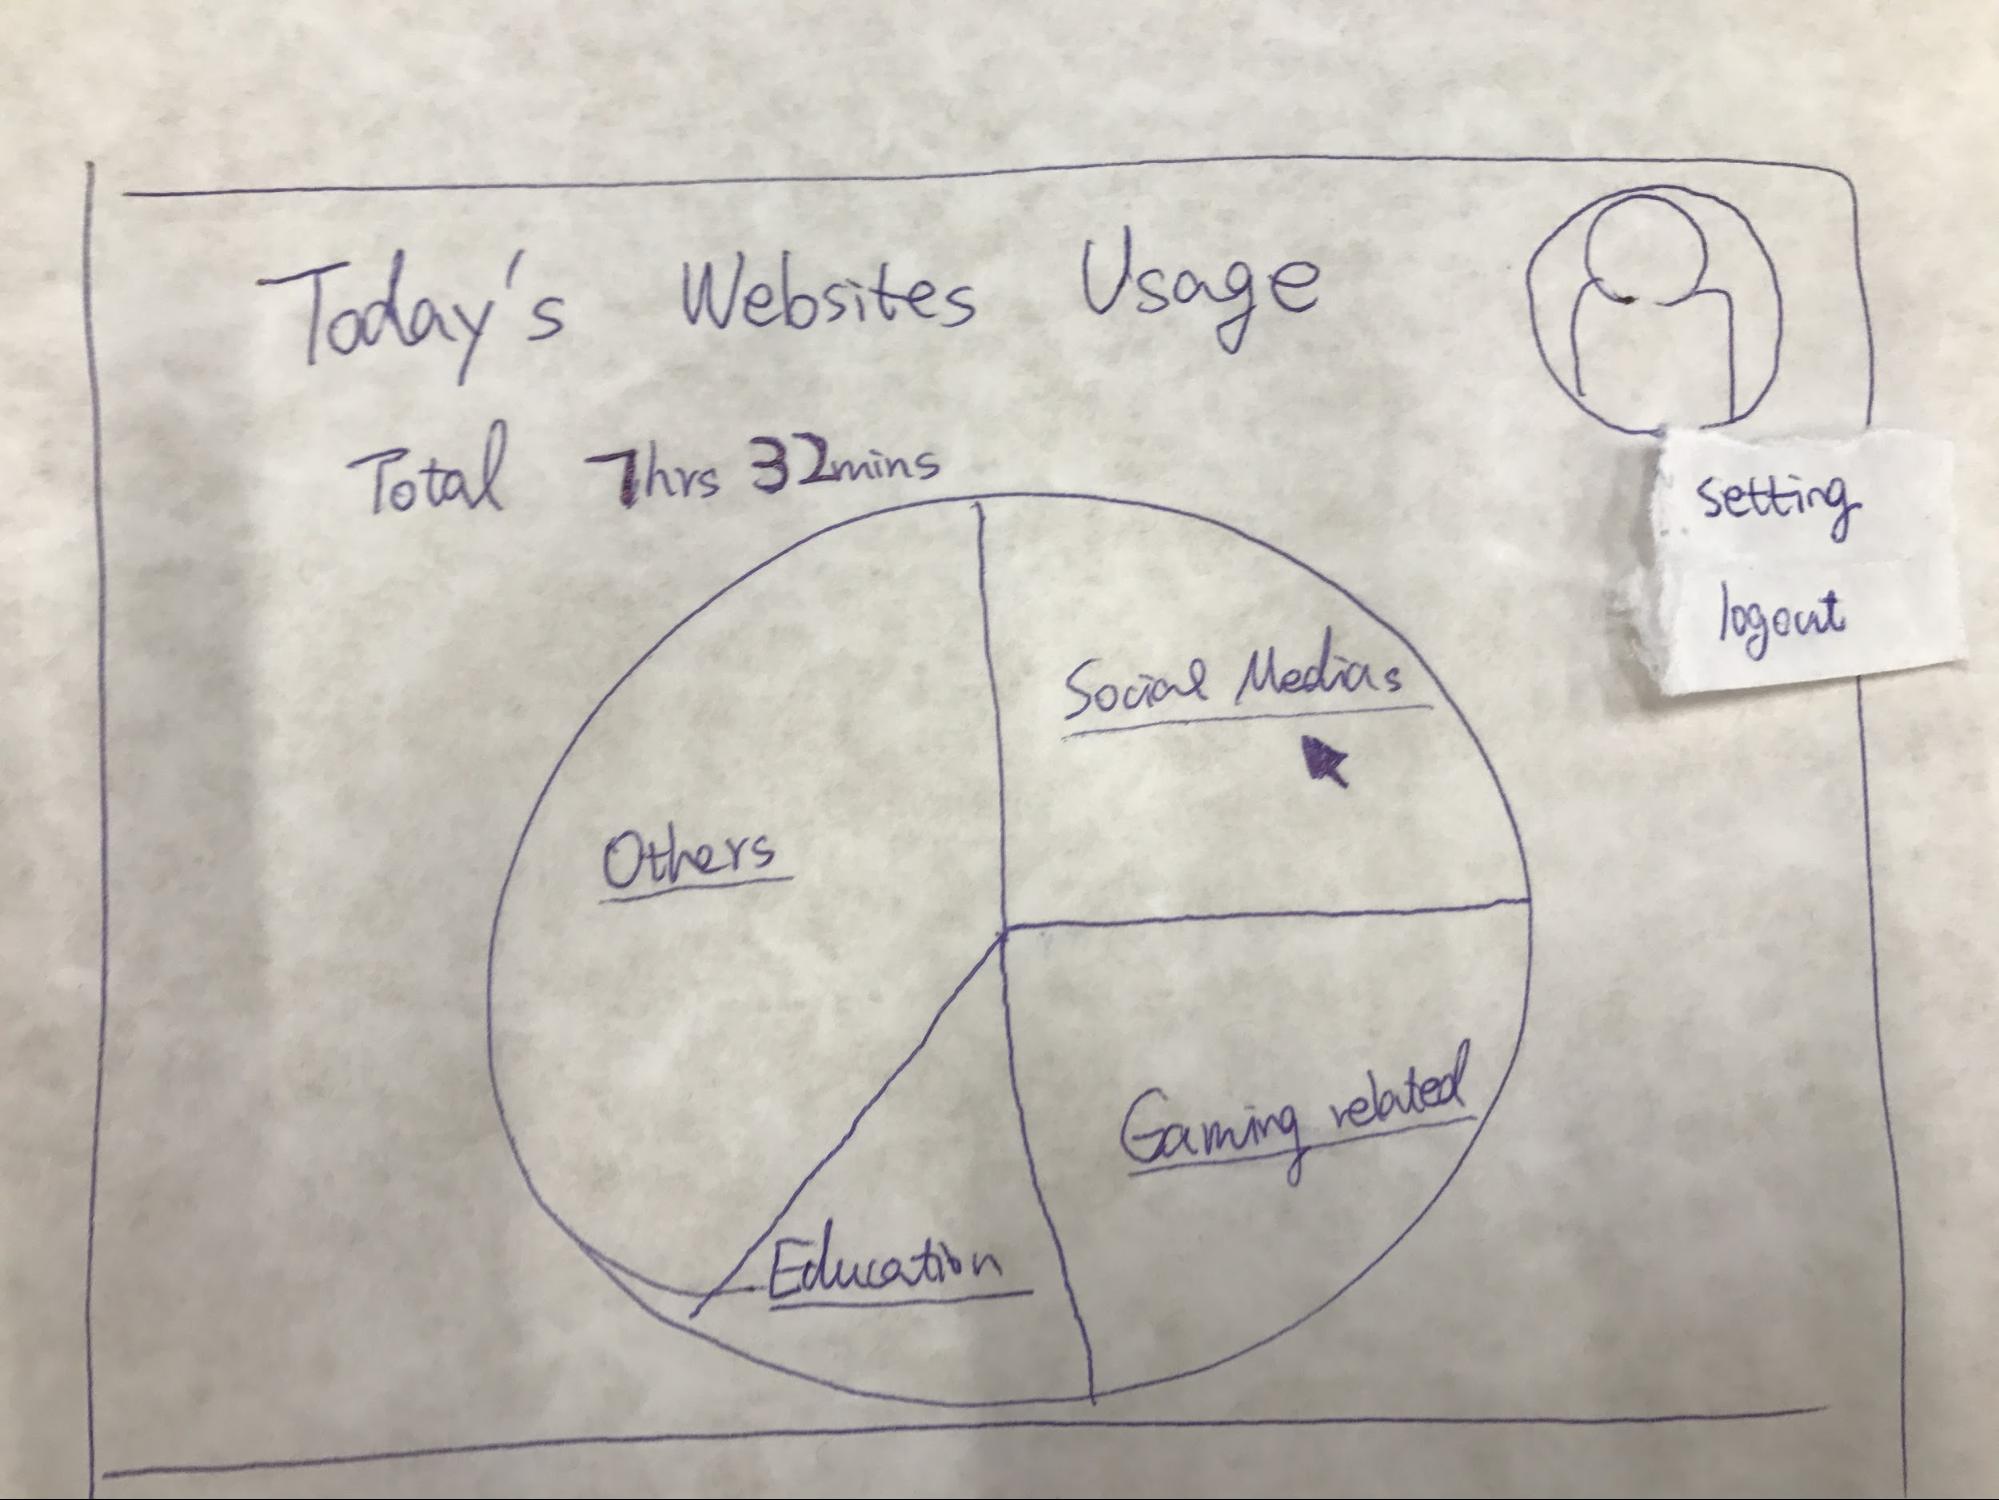 Today's Websites Usage
Total 7hrs 32mins
setting
logout
Social Medias
Others
Gaming related
Education